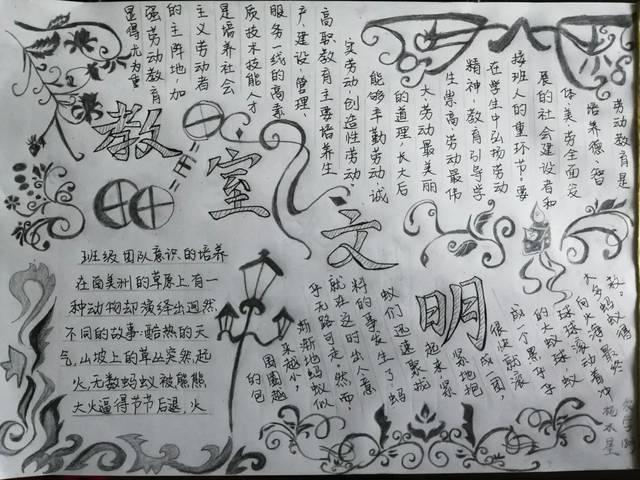 劳动教育是
培养德、智、
体、美、劳全面发
展的社会建设者和
接班人的重环节,要
在学生中弘扬劳动
精神,教育引导学
生崇高劳动最伟
大劳动最美丽
的道理,长大后
能够辛勤劳动、诚
实劳动、创造性劳动。
高职教育主要培养生
产、建设、管理、
服务一线的高素
质技术技能人才
是培养社会
主义劳动者
的主阵地,加
强劳动教育
显得尤为重
教室文明
班级团队意识的培养
在南美洲的草原上有一
种动物却演绎出迥然
不同的故事:酷热的天
气,山坡上的草丛突然起
火,无数蚂蚁被熊熊
大火逼得节节后退,火
的包
围圈越
来越小,
渐渐地蚂蚁似
乎无路可走。然而,
就在这时出人意
料的事发生了,蚂
蚁们迅速聚拢
起来,紧
紧地抱
成一团,
很快就滚
成一个黑乎乎
的大蚁球,蚁
球滚动着冲
向火海